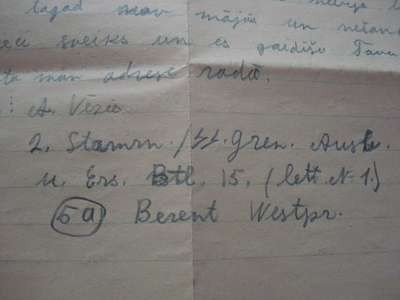 tagad nav mājās un
sveiks un es gaidīšu Tavu
man adrese rādā.
: A. Vēzis
2. Stamm. /SS. Gren. Ausb.
u. Ers. Btl. 15. (lett. № 1.)
5a Berent Westpr.